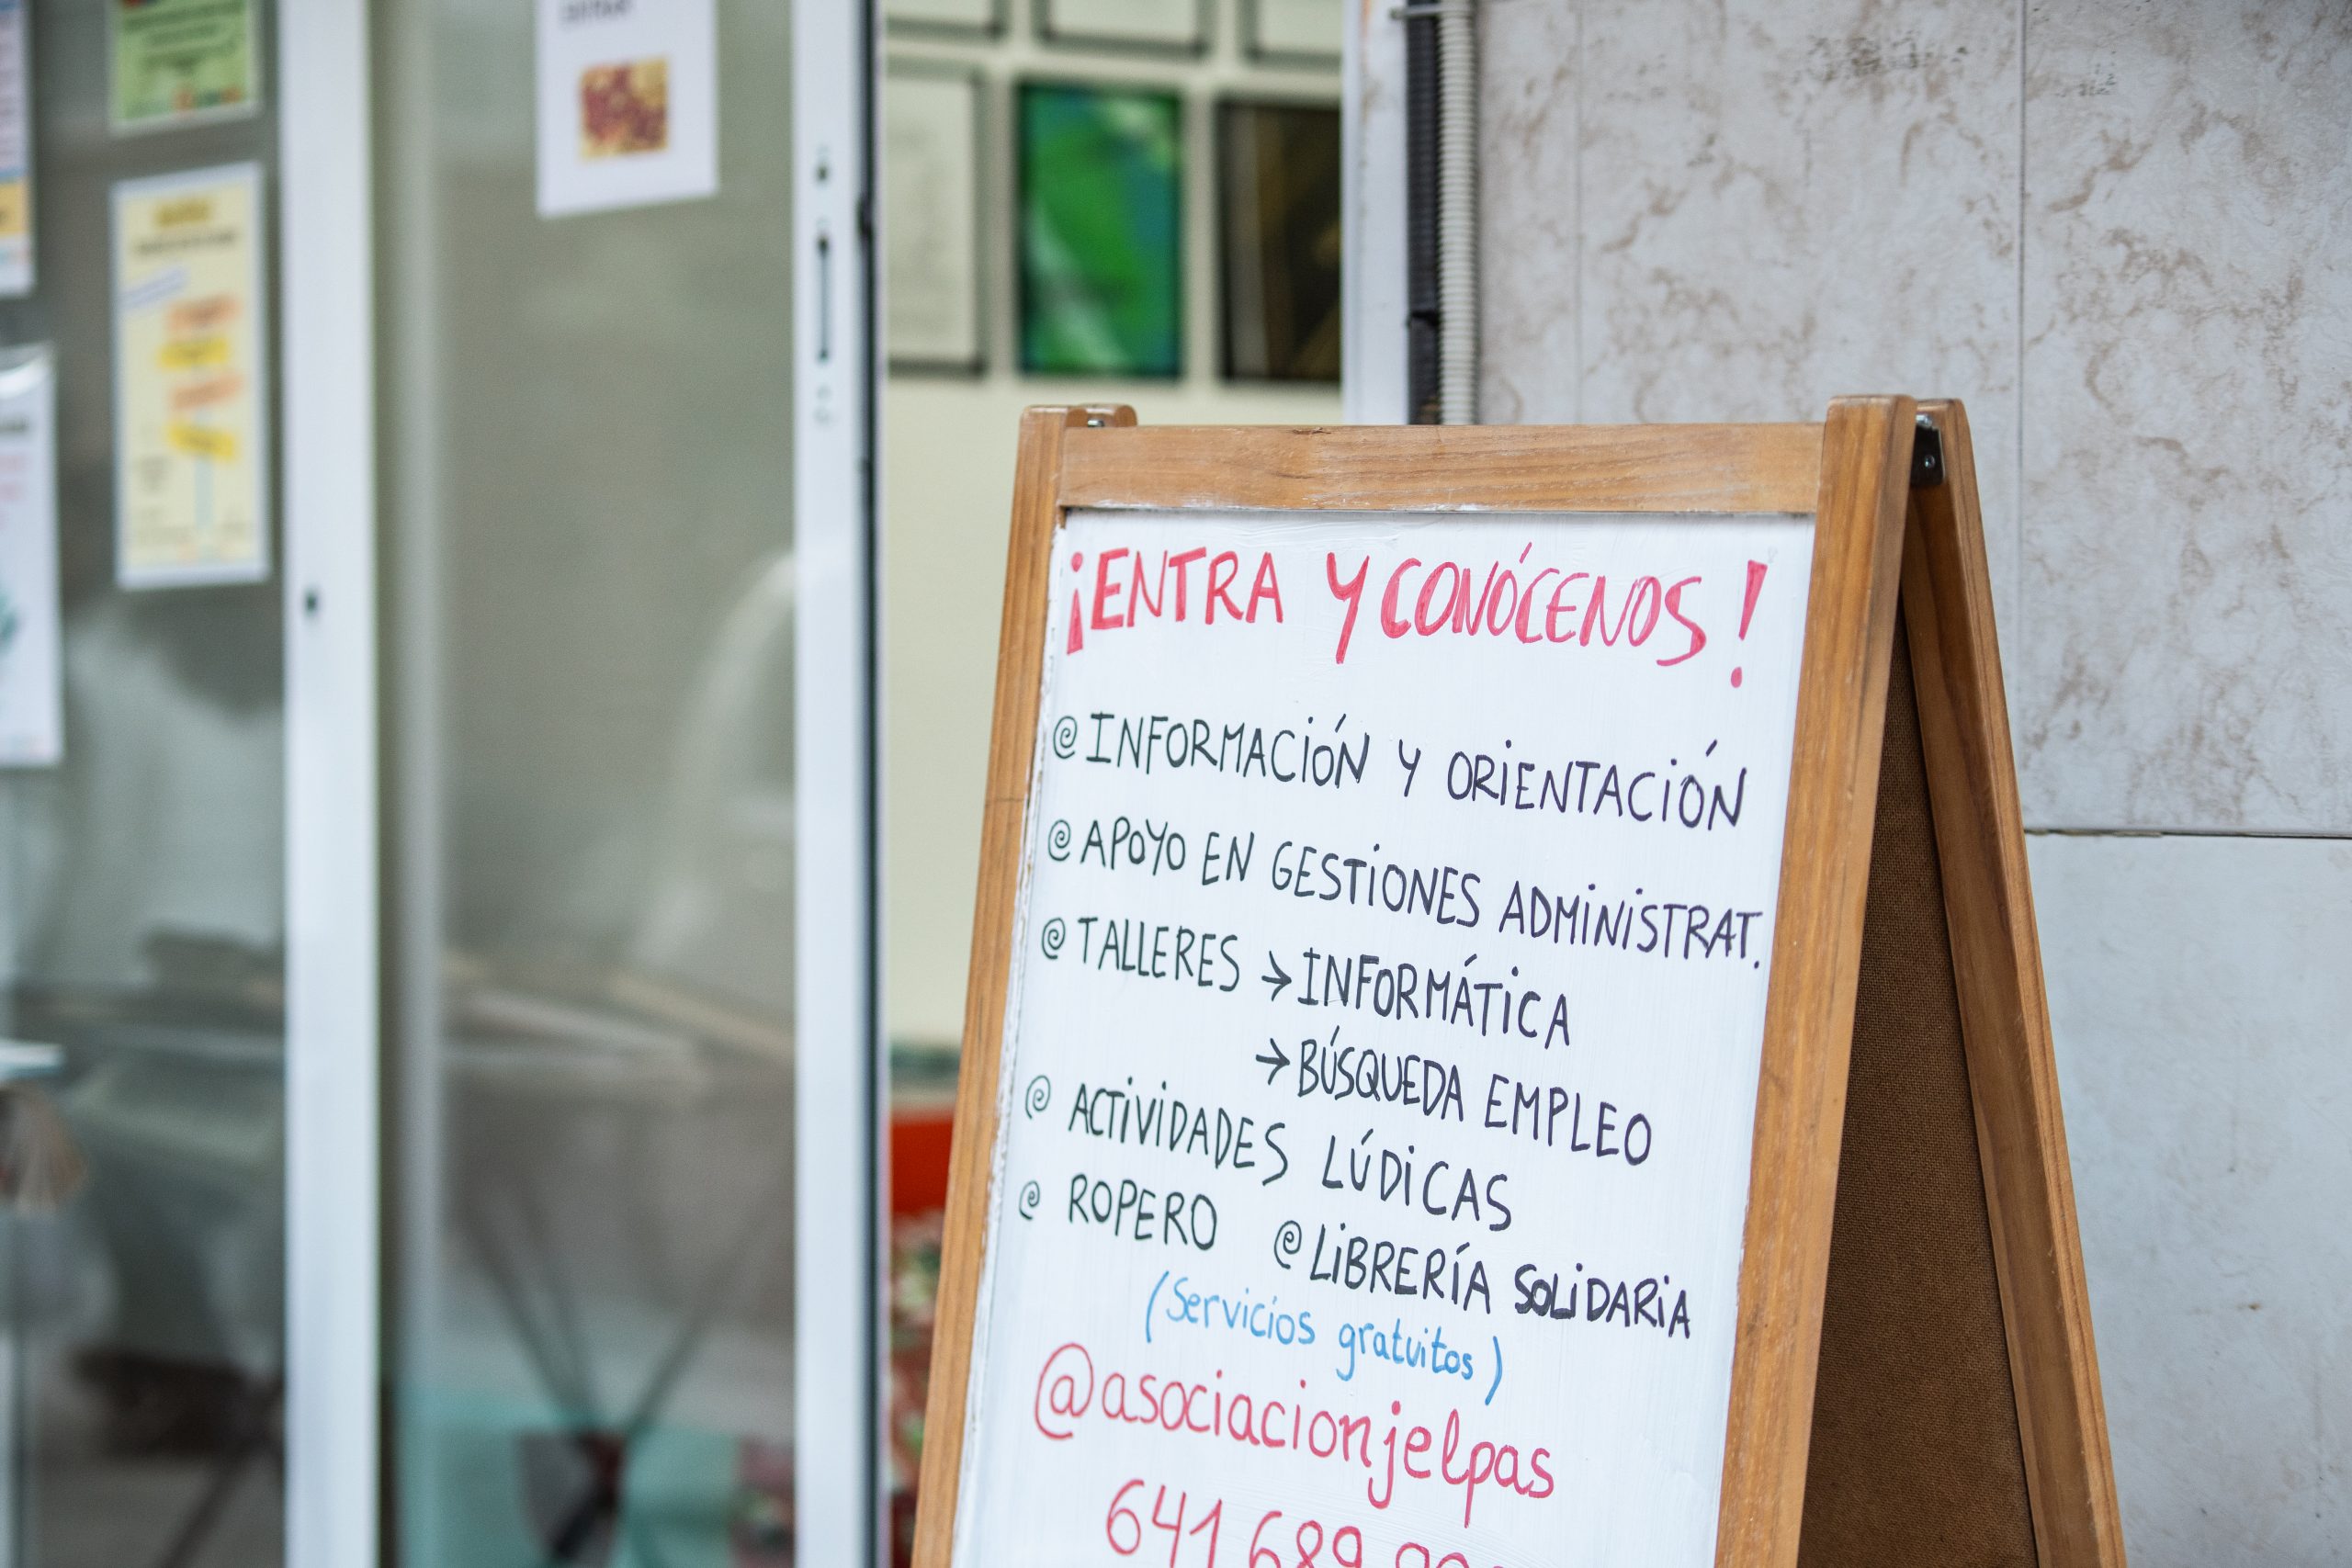 ¡ENTRA Y CONÓCENOS!
@ INFORMACIÓN Y ORIENTACIÓN
@ APOYO EN GESTIONES ADMINISTRAT.
@ TALLERES → INFORMÁTICA
→ BÚSQUEDA EMPLEO
@ ACTIVIDADES LÚDICAS
@ ROPERO @ LIBRERÍA SOLIDARIA
(Servicios gratuitos)
@asociacionjelpas
641 689